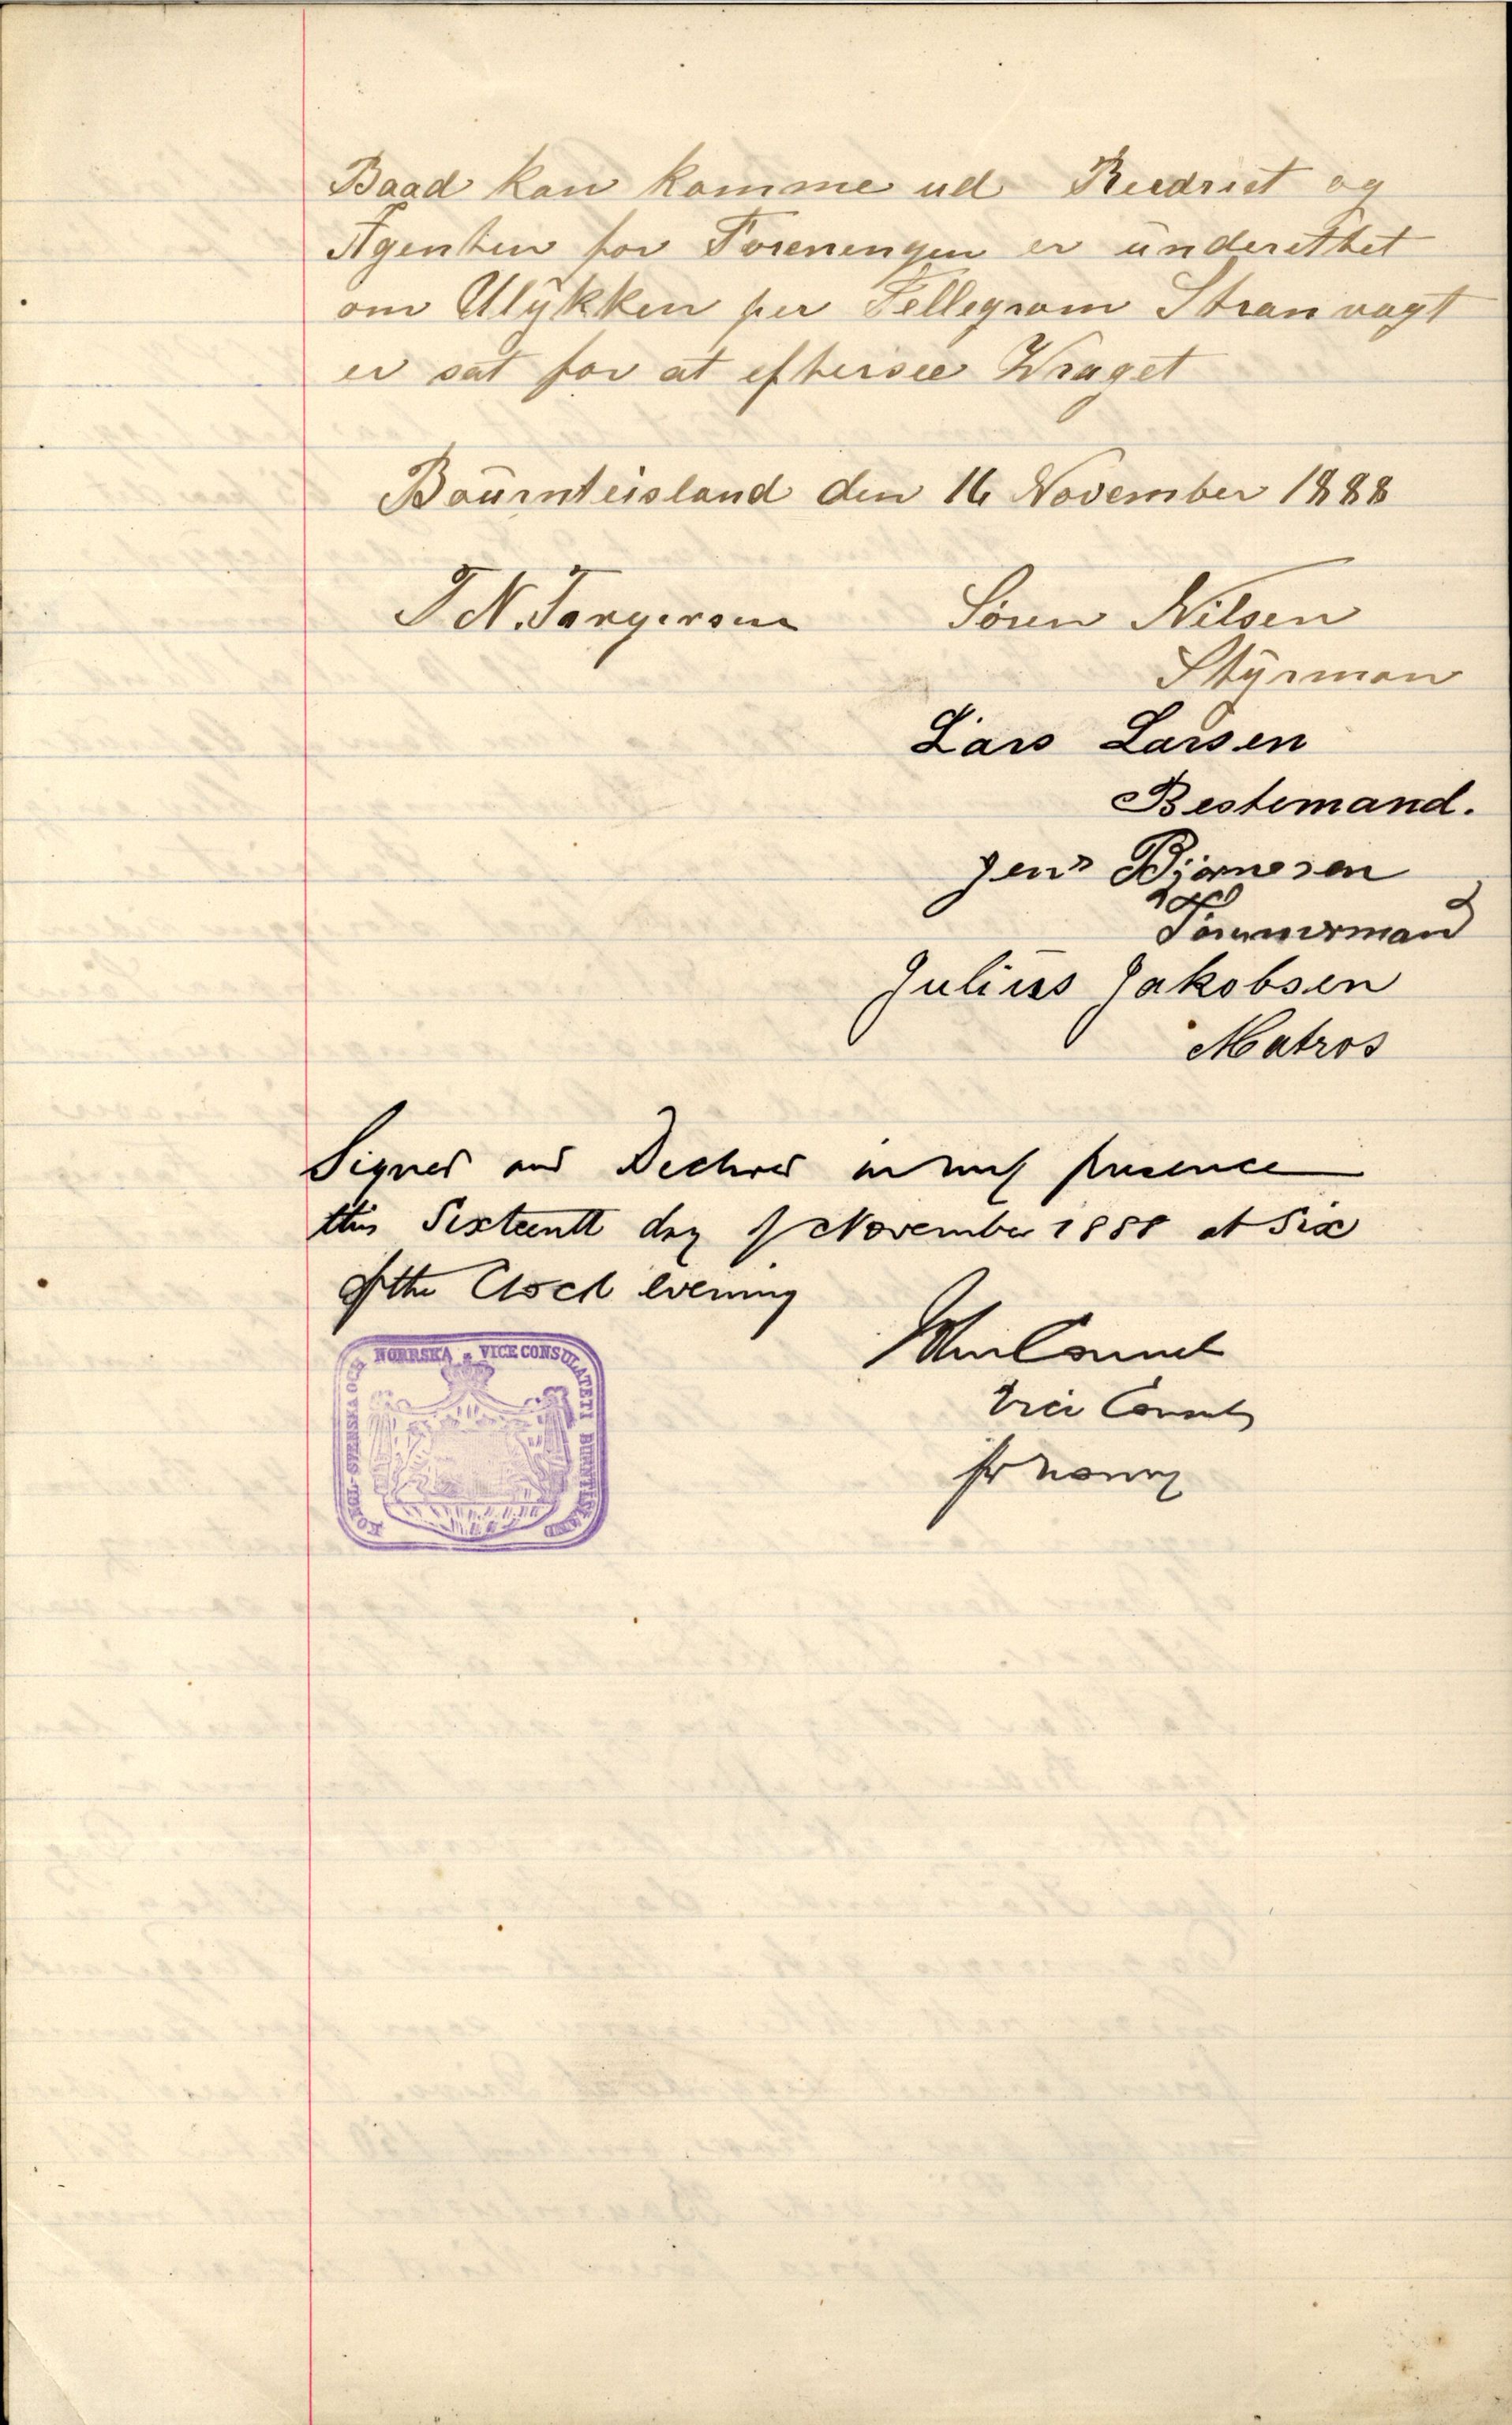 Baad kan komme ud Reedriet og
Agenten for Foreningen er underettet
om Ulykken per Tellegram Stranvagt
er sat for at eftersee Wraget
Bournteisland den 16 November 1888
T N. Torgersen Sören Nilsen
Styrman
Lars Larsen
Bestemand.
Jens Bjørnesen
Tømmermand
Julius Jakobsen
Matros
Signed and Declared in my presence
this Sixteenth day of November 1888 at Six
of the Clock evening
Vice Consul
for Norway
KONGL. SVENSKA OCH NORRSKA VICE CONSULATETI BURNTISLAND